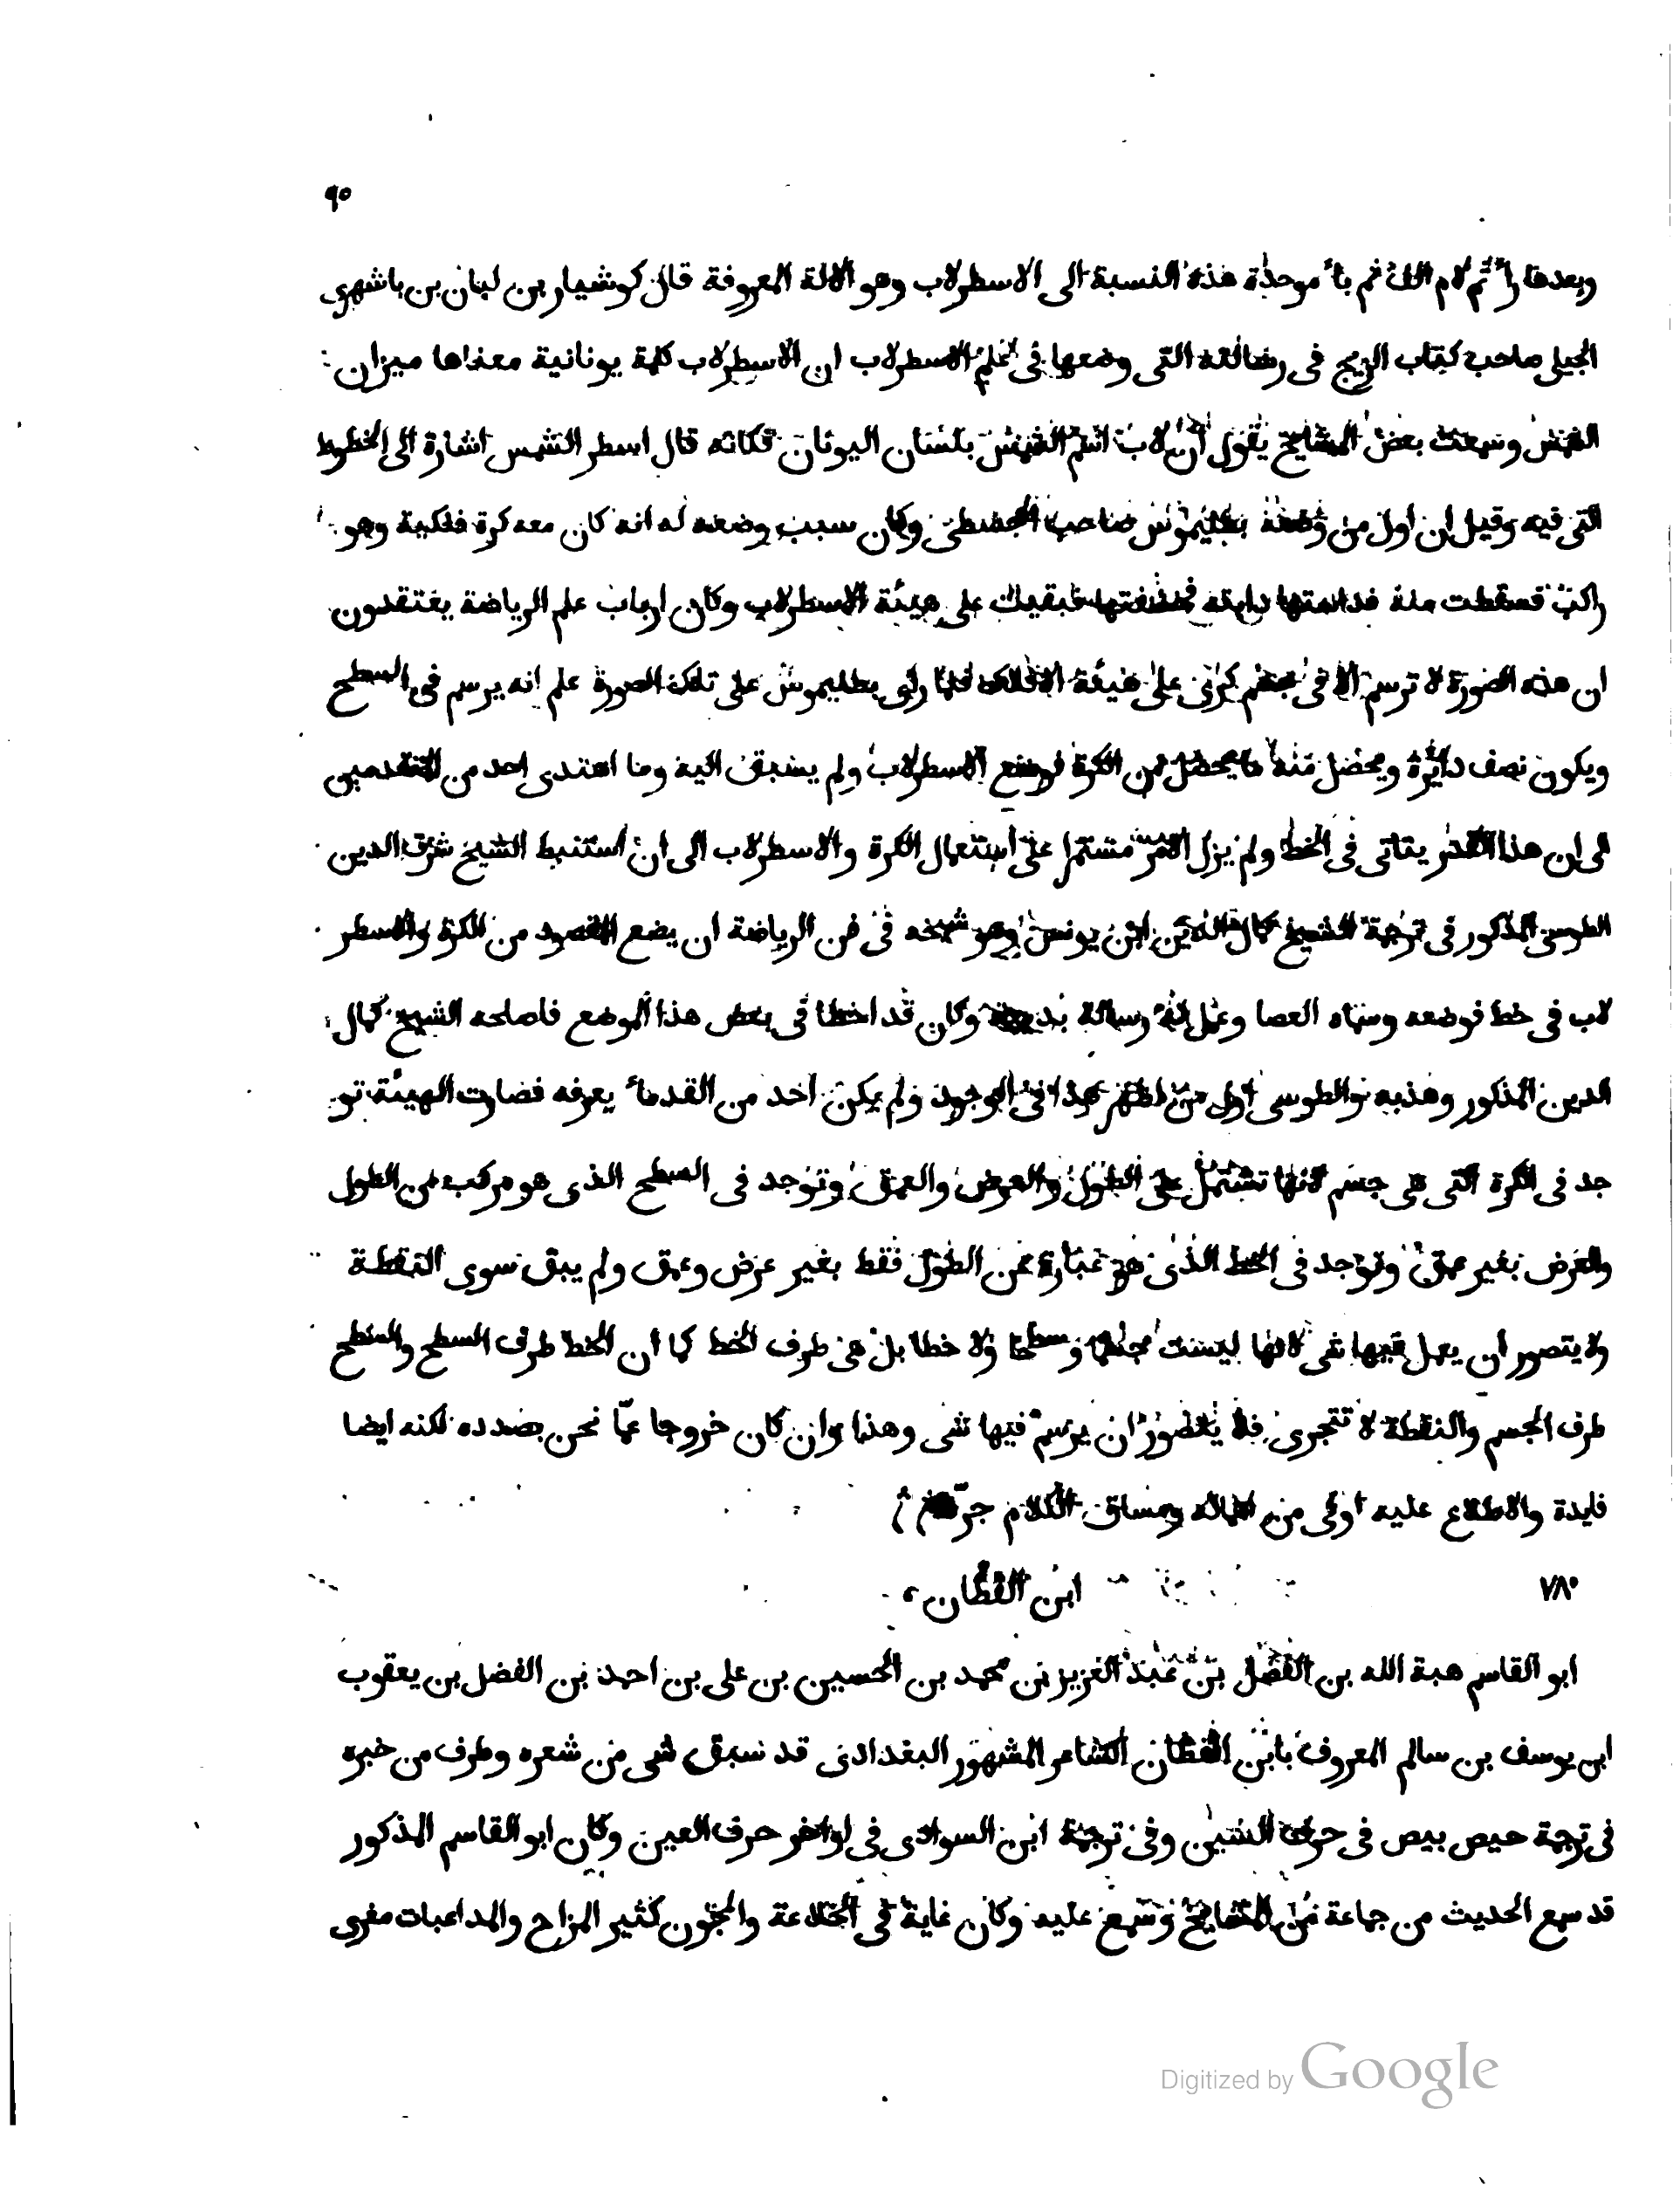 ٩٥
وبعدها رآ ثم لام الف ثم بآ موحدة هذه النسبة الى الاسطرلاب وهو الالة المعروفة قال كوشيار بن لبان بن باشهرى
الجيلى صاحب كتاب الزيج فى رسالته التى وضعها فى علم الاسطرلاب ان الاسطرلاب كلمة يونانية معناها ميزان
الشمس وسمعت بعض المشايخ يقول ان لاب اسم الشمس بلسان اليونان فكانه قال اسطر الشمس اشارة الى الخطوط
التى فيه وقيل ان اول من وضعه بطليموس صاحب المجسطى وكان سبب وضعه له انه كان معه كرة فلكية وهو
راكب فسقطت منه فداستها دابته فخسفتها فبقيت على هيئة الاسطرلاب وكان ارباب علم الرياضة يعتقدون
ان هذه الصورة لا ترسم الا فى جسم كرى على هيئة الافلاك فلما راى بطليموس على تلك الصورة علم انه يرسم فى السطح
ويكون نصف دائرة ويحصل منه ما يحصل من الكرة فوضع الاسطرلاب ولم يسبق اليه وما اهتدى احد من المتقدمين
الى ان هذا القدر يتاتى فى الخط ولم يزل الامر مستمرا على استعمال الكرة والاسطرلاب الى ان استنبط الشيخ شرف الدين
الطوسى المذكور فى ترجمة الشيخ كمال الدين ابن يونس وهو شيخه فى فن الرياضة ان يضع المقصود من الكرة والاسطر
لاب فى خط فوضعه وسماه العصا وعمل له رسالة بديعة وكان قد اخطا فى بعض هذا الموضع فاصلحه الشيخ كمال
الدين المذكور وهذبه والطوسى اول من اظهر هذا فى الوجود ولم يكن احد من القدمآ يعرفه فصارت الهيئة تو
جد فى الكرة التى هى جسم لانها تشتمل على الطول والعرض والعمق وتوجد فى السطح الذى هو مركب من الطول
والعرض بغير عمق وتوجد فى الخط الذى هو عبارة عن الطول فقط بغير عرض وعمق ولم يبق سوى النقطة
ولا يتصور ان يعمل فيها شى لانها ليست جسما وسطحا ولا خطا بل هى طرف الخط كما ان الخط طرف السطح والسطح
طرف الجسم والنقطة لا تتجزى فلا يتصور ان يرسم فيها شى وهذا وان كان خروجا عمّا نحن بصدده لكنه ايضا
فايدة والاطلاع عليه اولى من اهماله ومساق الكلام جرّ
٧٨٠ ابن القطّان،
ابو القاسم هبة الله بن الفضل بن عبد العزيز بن محمد بن الحسين بن على بن احمد بن الفضل بن يعقوب
ابن يوسف بن سالم المعروف بابن القطان الشاعر المشهور البغدادى قد سبق شى من شعره وطرف من خبره
فى ترجمة حيص بيص فى حرف الشين وفى ترجمة ابن السوادى فى اواخر حرف العين وكان ابو القاسم المذكور
قد سمع الحديث من جماعة من المشايخ وسمع عليه وكان غاية فى الخلاعة والمجون كثير المزاح والمداعبات مغرى
Digitized by Google